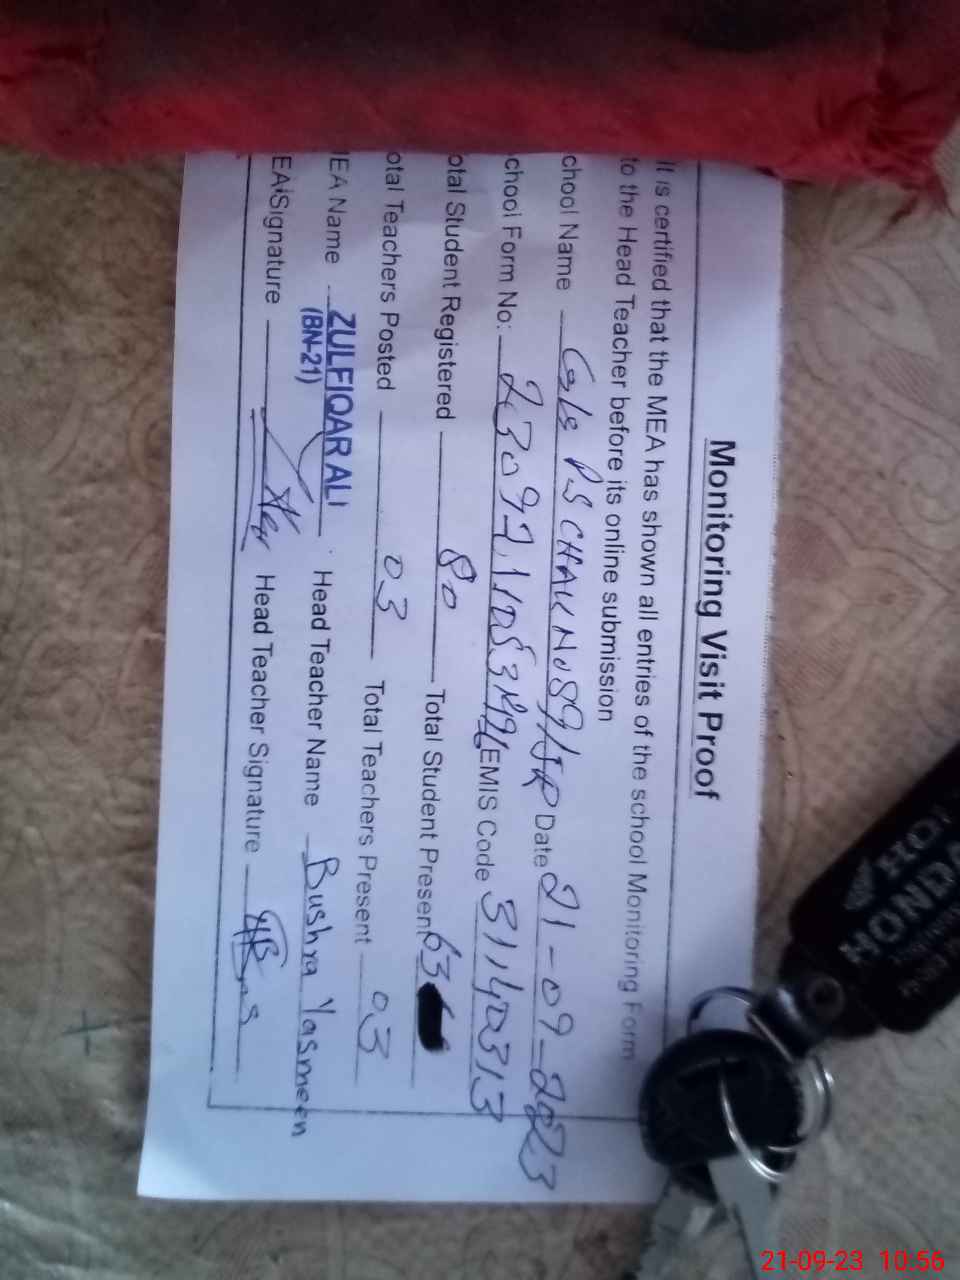 Monitoring Visit Proof
It is certified that the MEA has shown all entries of the school Monitoring Form
to the Head Teacher before its online submission
chool Name PS CHAK No 89/15R Date 21-09-2023
chool Form No: EMIS Code 31140313
otal Student Registered 80 Total Student Present 63
otal Teachers Posted 03 Total Teachers Present 03
IEA Name ZULFIQAR ALI Head Teacher Name Bushra Yasmeen
(BN-21)
EA Signature Head Teacher Signature
HONDA
21-09-23 10:56